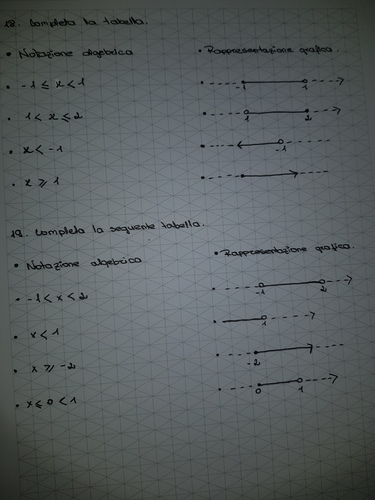 18. Completa la tabella.
• Notazione algebrica • Rappresentazione grafica.
• -1 ≤ x < 1 -1 1
• 1 < x ≤ 2 1 2
• x < -1 -1
• x ⩾ 1
19. Completa la seguente tabella.
• Notazione algebrica • Rappresentazione grafica.
• -1 < x < 2 -1 2
• x < 1 1
• x ⩾ -2 -2
• x ≤ 0 < 1 0 1